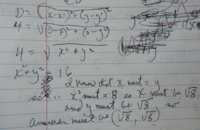 D = √(x-x)²+(y-y)²
4 = √(x-0)²+(0-y)²
4 = √x²+y²
x²+y² 16
I know that x must = y
so x² must = 8 so x must be √8
and y must be √8 so
answer must be (√8, √8)